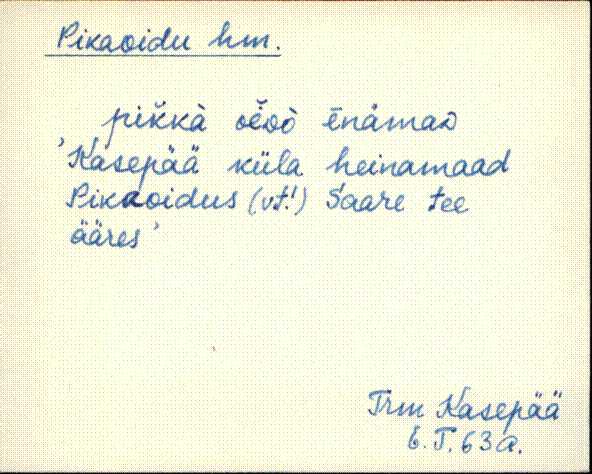 Pikaoidu hm.
pik̆kà oĕoò ēnàmaᴅ
'Kasepää küla heinamaad
Pikaoidus (vt!) Saare tee
ääres'
Trm Kasepää
E. T. 63 a.